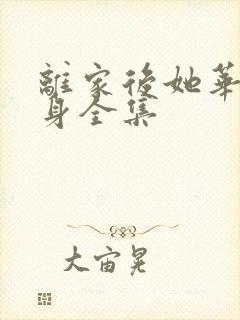 離家後她華
身全集
大宙晃